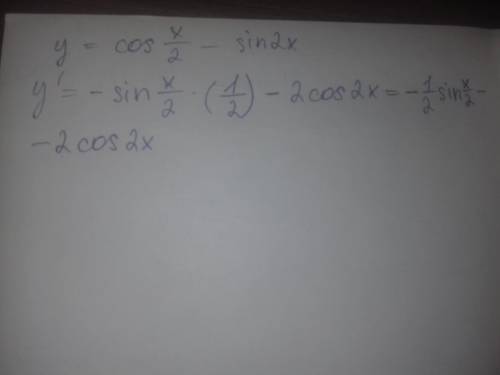 y = cos x/2 - sin2x
y' = -sin x/2 · (1/2) - 2cos2x = -1/2 sin x/2 -
-2cos2x